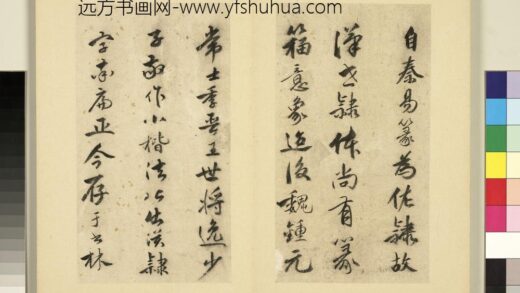 远方书画网-www.yfshuhua.com
自秦易篆為佐隸故
漢世隸体尚有篆
籀意象迨後魏鍾元
常士季晋王世将逸少
子敬作小楷法皆出漢隸
字率扁正今存于書林